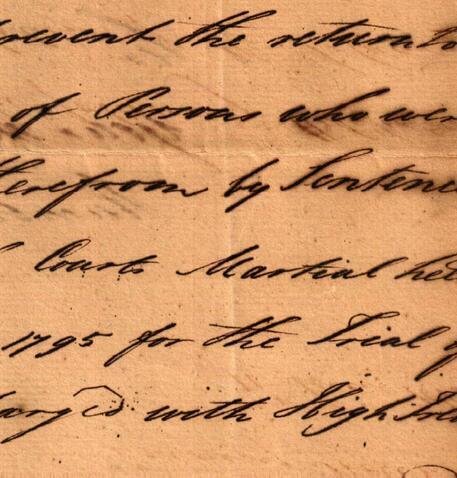 revent the return to
of Persons who wer
therefrom by Sentenc
Courts Martial hel
1795 for the Trial of
harg'd with High Trea